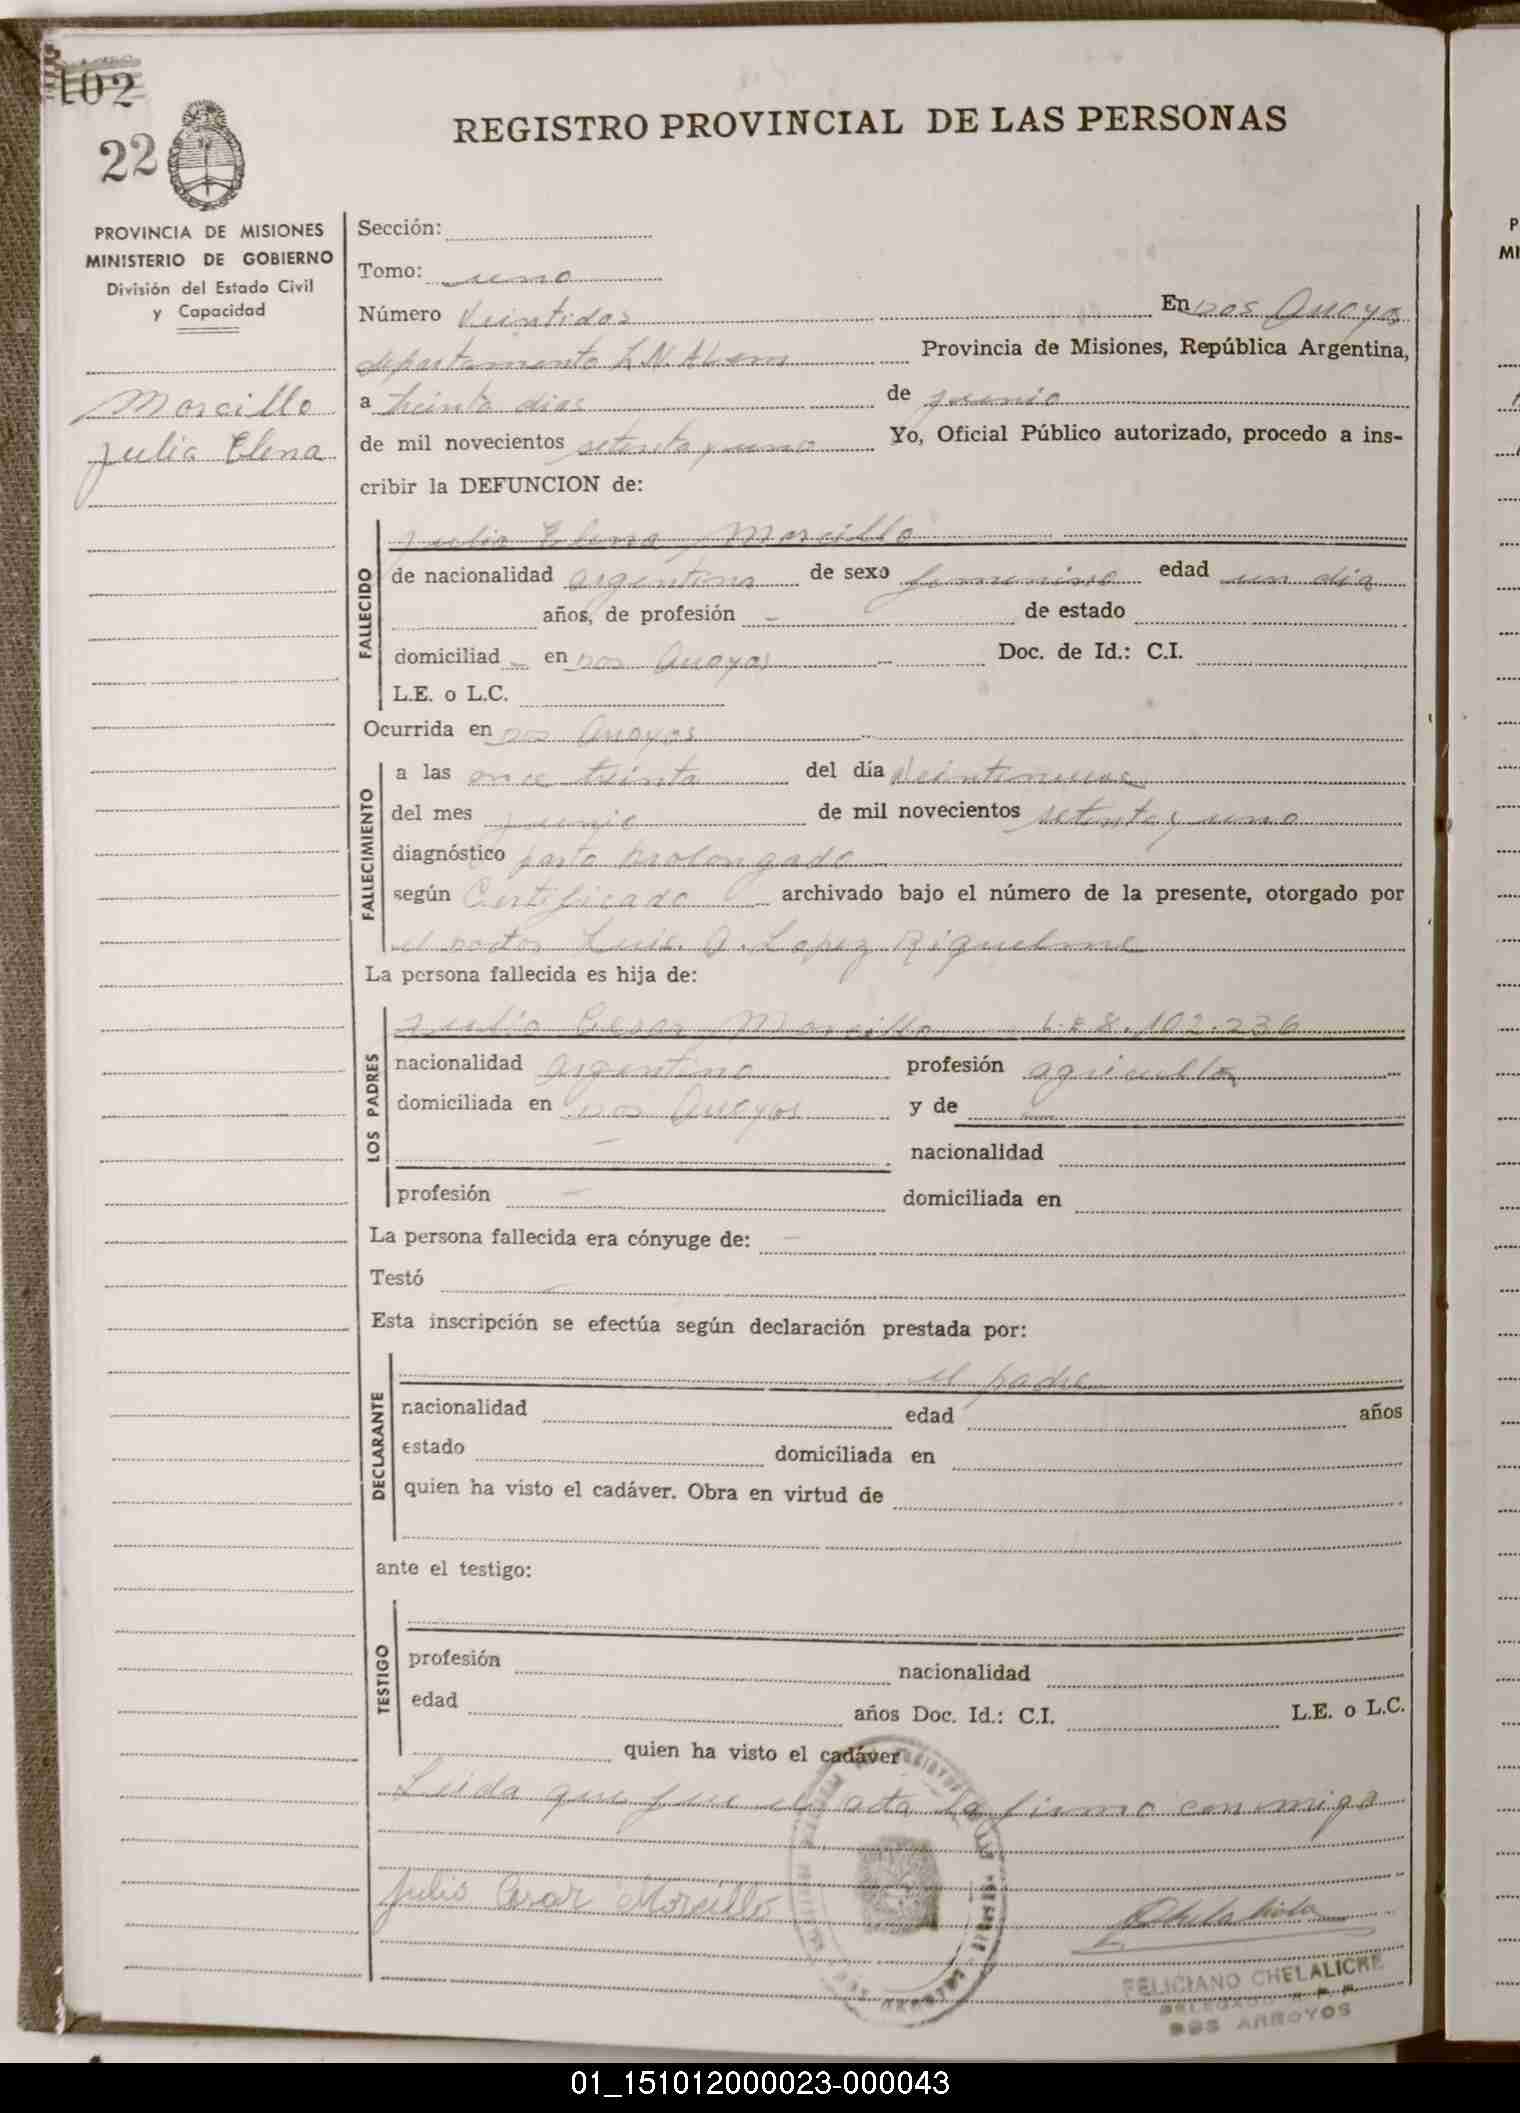 102
22
REGISTRO PROVINCIAL DE LAS PERSONAS
PROVINCIA DE MISIONES
MINISTERIO DE GOBIERNO
División del Estado Civil
y Capacidad
Morcillo
Julia Elena
Sección:
Tomo: uno
Número Veintidos En Dos Arroyos
departamento L.N. Alem Provincia de Misiones, República Argentina,
a treinta dias de junio
de mil novecientos setenta y uno Yo, Oficial Público autorizado, procedo a ins-
cribir la DEFUNCION de:
Julia Elena Morcillo
FALLECIDO
de nacionalidad argentina de sexo femenino edad un dia
años, de profesión - de estado
domiciliad - en Dos Arroyos Doc. de Id.: C.I.
L.E. o L.C.
Ocurrida en Dos Arroyos
FALLECIMIENTO
a las once treinta del día Veintinueve
del mes junio de mil novecientos setenta y uno
diagnóstico parto prolongado
según Certificado archivado bajo el número de la presente, otorgado por
el Doctor Luis A. Lopez Riquelme
La persona fallecida es hija de:
LOS PADRES
Julio Cesar Morcillo L.E 8.102.236
nacionalidad argentino profesión agricultor
domiciliada en Dos Arroyos y de —
- nacionalidad
profesión - domiciliada en
La persona fallecida era cónyuge de: -
Testó
Esta inscripción se efectúa según declaración prestada por:
DECLARANTE
el padre
nacionalidad edad años
estado domiciliada en
quien ha visto el cadáver. Obra en virtud de
ante el testigo:
TESTIGO
profesión nacionalidad
edad años Doc. Id.: C.I. L.E. o L.C.
quien ha visto el cadáver
Leida que fue el acta la firma conmigo
Julio Cesar Morcillo
FELICIANO CHELALICHE
DELEGADO R. P. P.
DOS ARROYOS
P
MI
01_151012000023-000043